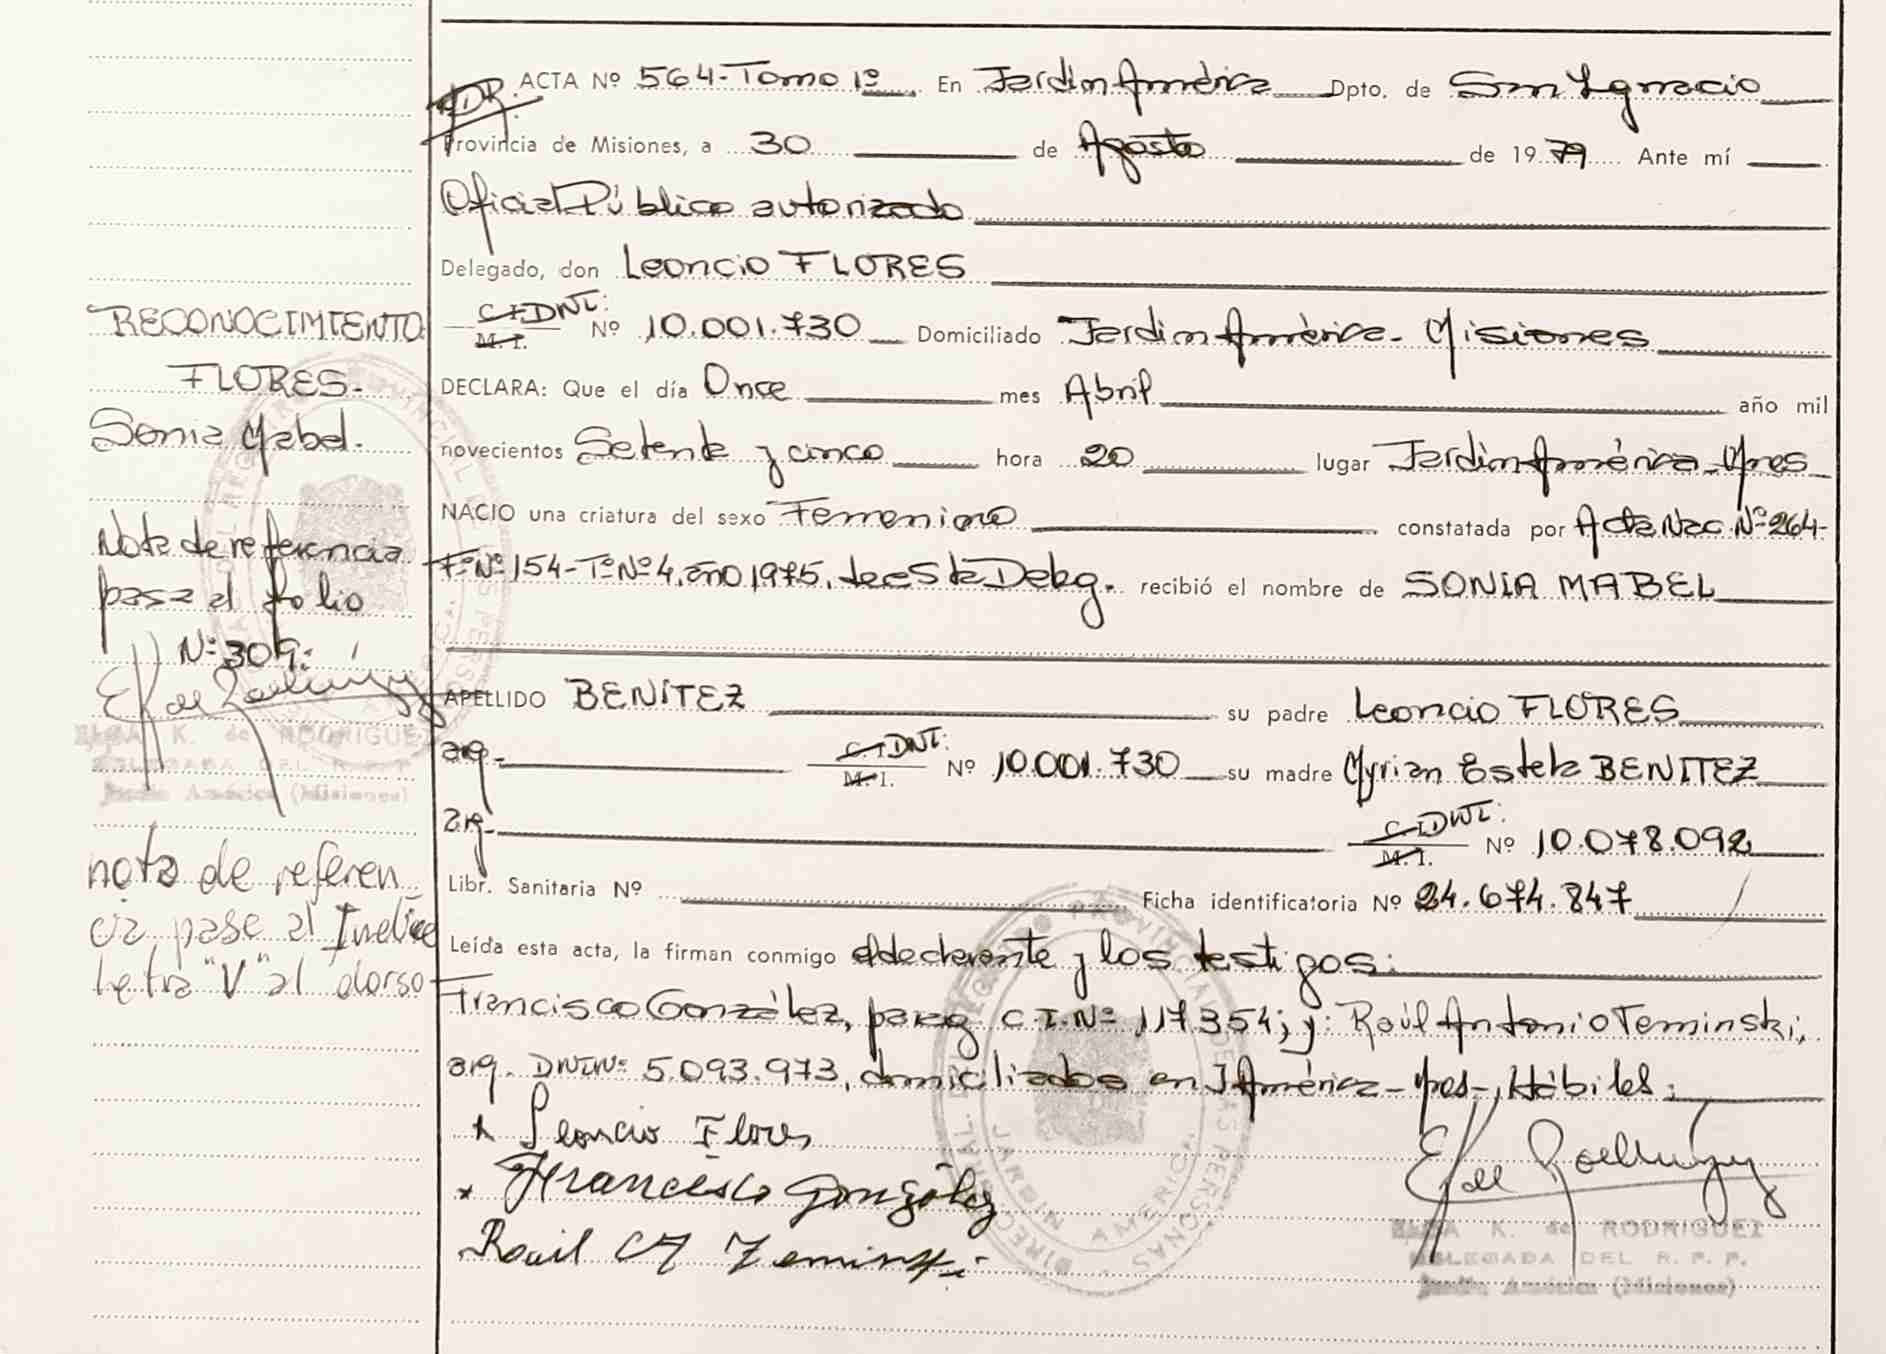 ACTA Nº 564-Tomo 1º En Jardín América Dpto. de San Ignacio
Provincia de Misiones, a 30 de Agosto de 1979 Ante mí
Oficial Público autorizado
Delegado, don Leoncio FLORES
C.I. DNI: M.I. Nº 10.001.730 Domiciliado Jardín América- Misiones
DECLARA: Que el día Once mes Abril año mil
novecientos Setenta y cinco hora 20 lugar Jardín América-Mnes
NACIO una criatura del sexo Femenino constatada por Acta Nac. Nº 264-
Fº Nº 154- Tº Nº 4, año 1975, de esta Deleg. recibió el nombre de SONIA MABEL
APELLIDO BENÍTEZ su padre Leoncio FLORES
arg. C.I. DNI: M.I. Nº 10.001.730 su madre Myrian Estela BENÍTEZ
arg. C.I. DNI: M.I. Nº 10.078.092
Libr. Sanitaria Nº Ficha identificatoria Nº 24.674.847
Leída esta acta, la firman conmigo el declarante y los testigos:
Francisco González, parag. C.I. Nº 117354; y: Raúl Antonio Teminski,
arg. DNI Nº 5.093.973, domiciliados en J. América-Mnes-, Hábiles:
Leoncio Flores
Francisco González
Raúl A Teminski
ELSA K. de RODRIGUEZ
DELEGADA DEL R. P. P.
Jardín América (Misiones)
RECONOCIMIENTO
FLORES-
Sonia Mabel.
Nota de referencia
pasa al folio
Nº 309:
ELSA K. de RODRIGUEZ
DELEGADA DEL R. P. P.
Jardín América (Misiones)
nota de referen
cia, pase al Indice
letra "V" al dorso